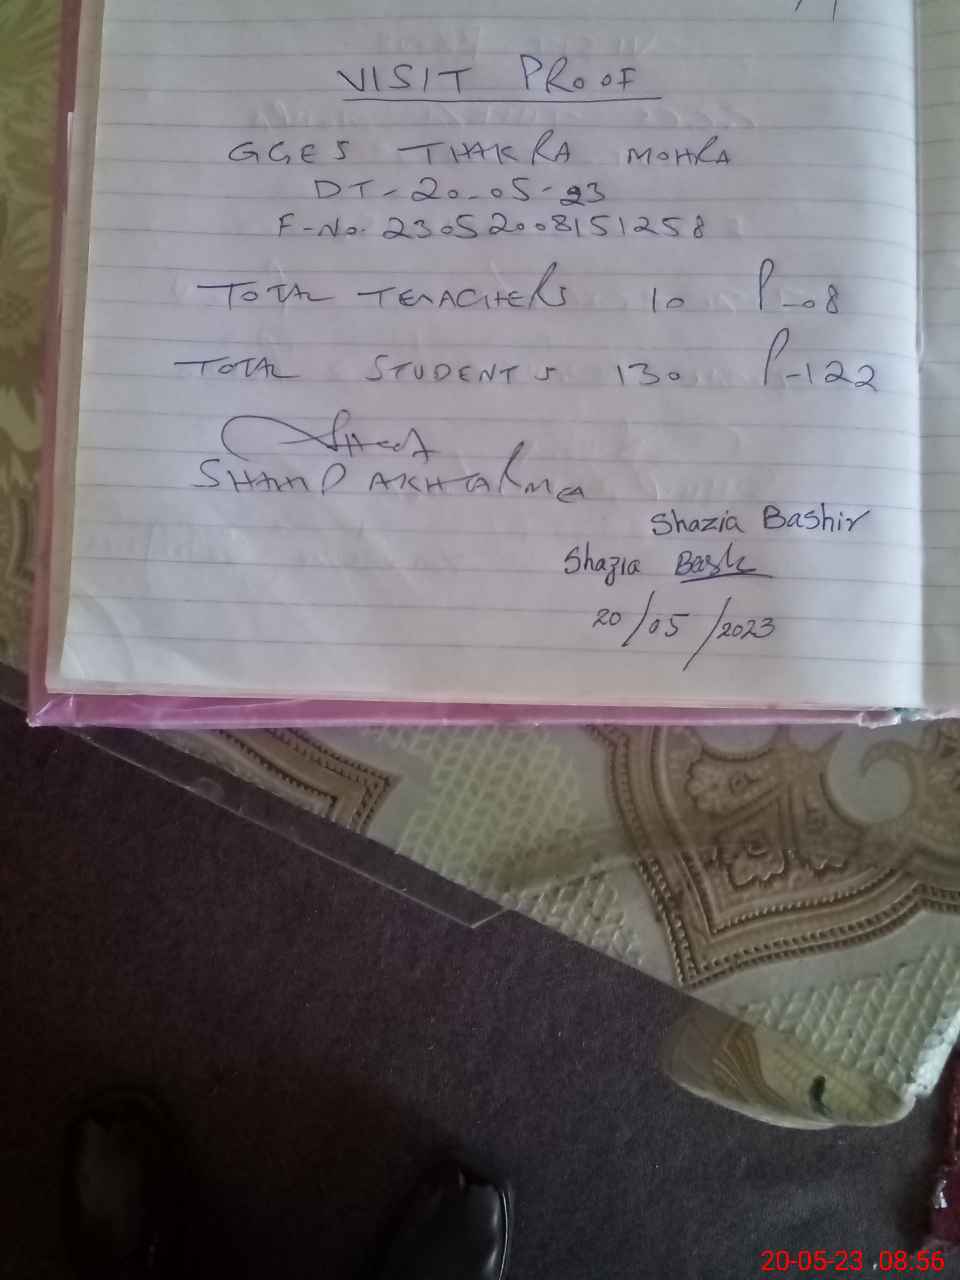 VISIT PROOF
GGES THAKRA MOHRA
DT-20-05-23
F-No. 23052008151258
TOTAL TEACHERS 10 P-08
TOTAL STUDENTS 130 P-122
AKHTAR MEA
Shazia Bashir
Shazia
20/05/2023
20-05-23 ,08:56